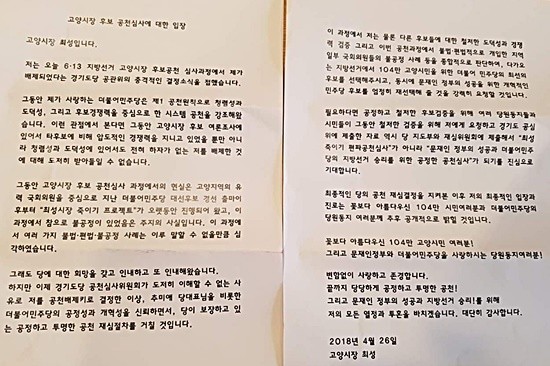 고양시장 후보 공천심사에 대한 입장
고양시장 최성입니다.
저는 오늘 6·13 지방선거 고양시장 후보공천 심사과정에서 제가
배제되었다는 경기도당 공관위의 충격적인 결정소식을 접했습니다.
그동안 제가 사랑하는 더불어민주당은 제1 공천원칙으로 청렴성과
도덕성, 그리고 후보경쟁력을 중심으로 한 시스템 공천을 강조해왔
습니다. 이런 관점에서 본다면 그동안 고양시장 후보 여론조사에
있어서 타후보에 비해 압도적인 경쟁력을 지니고 있었을 뿐만 아니
라 청렴성과 도덕성에 있어서도 전혀 하자가 없는 저를 배제한 것
에 대해 도저히 받아들일 수 없습니다.
그동안 고양시장 후보 공천심사 과정에서의 현실은 고양지역의 유
력 국회의원을 중심으로 지난 더불어민주당 대선후보 경선 출마이
후부터 "최성시장 죽이기 프로젝트"가 오랫동안 진행되어 왔고, 이
과정에서 참으로 불공정이 있었음은 주지의 사실입니다. 이 과정에
서 여러 가지 불법·편법·불공정 사례는 이루 말할 수 없을만큼 심
각하였습니다.
그래도 당에 대한 희망을 갖고 인내하고 또 인내해왔습니다.
하지만 이제 경기도당 공천심사위원회가 도저히 이해할 수 없는 사
유로 저를 공천배제키로 결정한 이상, 추미애 당대표님을 비롯한
더불어민주당의 공정성과 개혁성을 신뢰하면서, 당이 보장하고 있
는 공정하고 투명한 공천 재심절차를 거칠 것입니다.
이 과정에서 저는 물론 다른 후보들에 대한 철저한 도덕성과 경쟁
력 검증 그리고 이번 공천과정에서 불법·편법적으로 개입한 지역
일부 국회의원들의 불공정 사례 등을 종합적으로 판단하여, 다가오
는 지방선거에서 104만 고양시민을 위한 더불어 민주당의 최선의
후보를 선택해주시고, 동시에 문재인 정부의 성공을 위한 개혁적인
민주당 후보를 엄정히 재선택해 줄 것을 강력히 요청할 것입니다.
필요하다면 공정하고 철저한 후보검증을 위해 여러 당원동지들과
시민들이 그동안 철저한 검증을 위해 저에게 요청하고 경기도 공심
위에 제출한 자료 역시 당 지도부와 재심위원회에 제출해서 "최성
죽이기 편파공천심사"가 아니라 "문재인 정부의 성공과 더불어민주
당의 지방선거 승리를 위한 공정한 공천심사"가 되기를 진심으로
기대합니다.
최종적인 당의 공천 재심결정을 지켜본 이후 저의 최종적인 입장과
진로는 꽃보다 아름다우신 104만 시민여러분과 더불어민주당의
당원동지 여러분께 추후 공개적으로 밝힐 것입니다.
꽃보다 아름다우신 104만 고양시민 여러분!
그리고 문재인정부와 더불어민주당을 사랑하시는 당원동지여러분!
변함없이 사랑하고 존경합니다.
끝까지 당당하게 공정하고 투명한 공천!
그리고 문재인 정부의 성공과 지방선거 승리!를 위해
저의 모든 열정과 투혼을 바치겠습니다. 대단히 감사합니다.
2018년 4월 26일
고양시장 최성